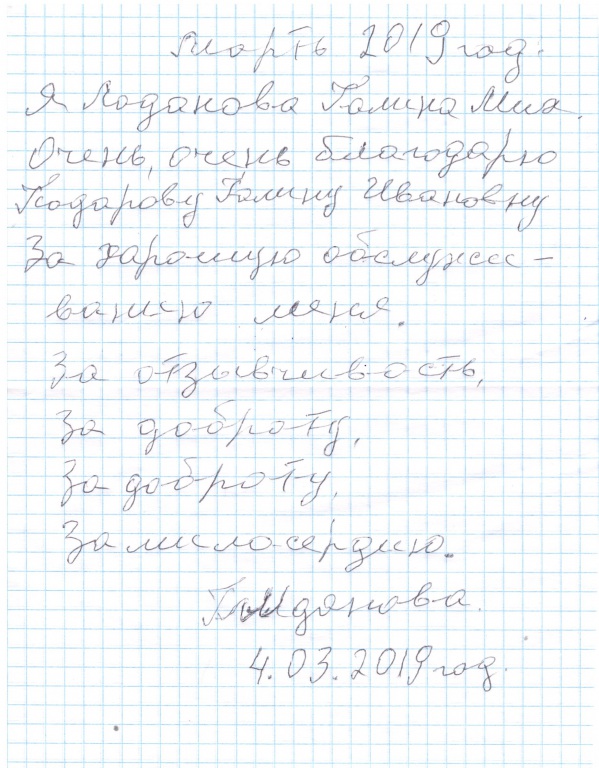 Марть 2019 год.
Я Коданова Галина Мих.
Очень, очень благодарю
Кодарову Галину Ивановну
За харошую обслужи-
ванию меня.
За отзывчивость,
За доброту,
За доброту,
За милосердию.
4.03.2019 год.